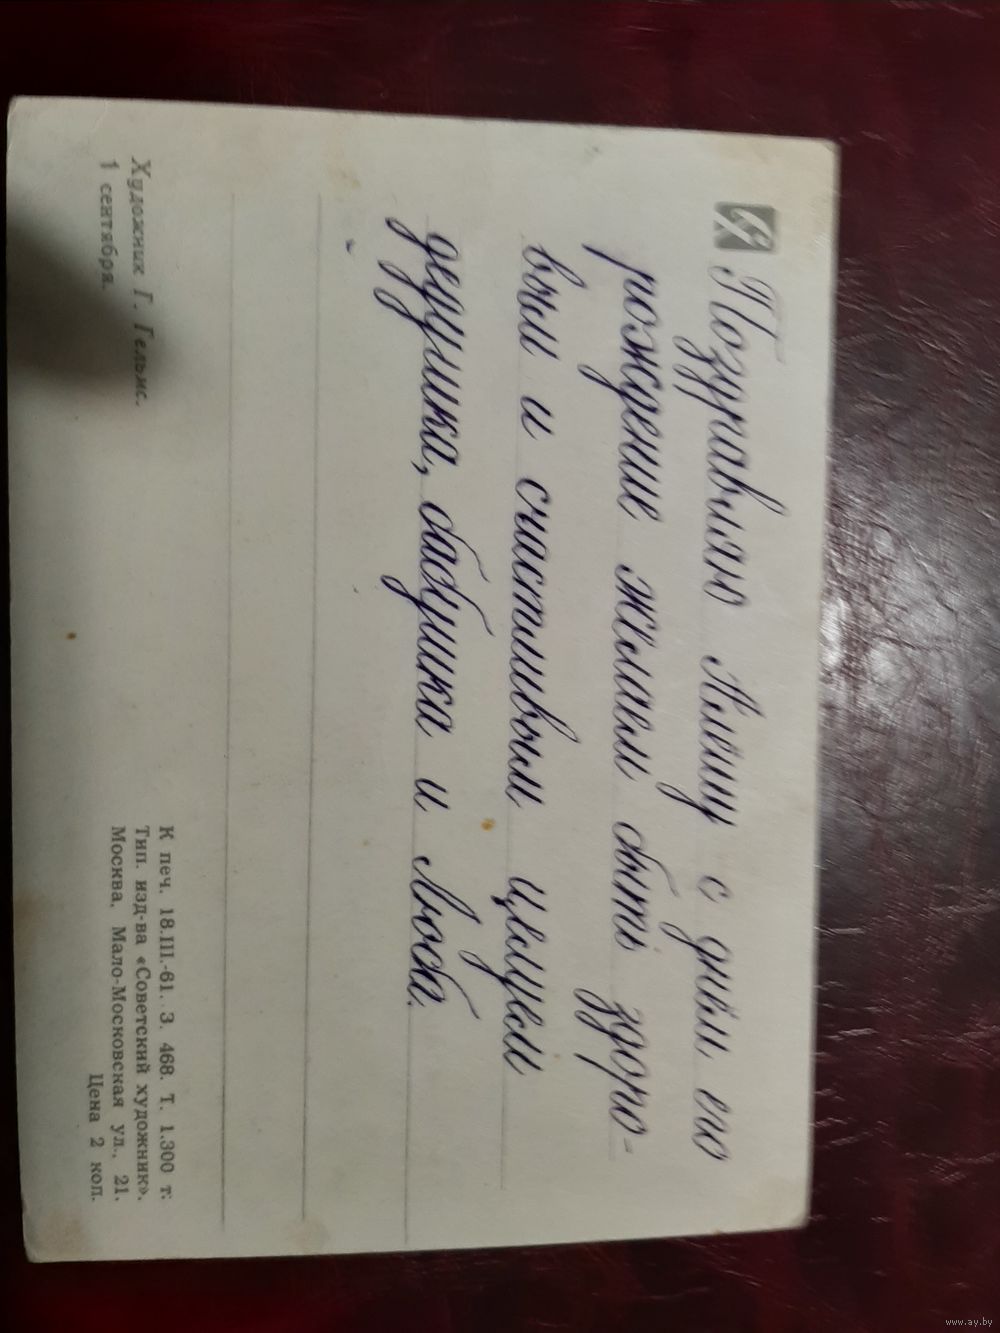 Поздравляю Алешу с днём его
рождение желаем быть здоро-
вым и счастливым целуем
дедушка, бабушка и Люба.
Художник Г. Гельмс.
1 сентября.
К печ. 18.III.-61. З. 468. Т. 1.300 т.
Тип. изд-ва «Советский художник».
Москва, Мало-Московская ул., 21.
Цена 2 коп.
www.ay.by